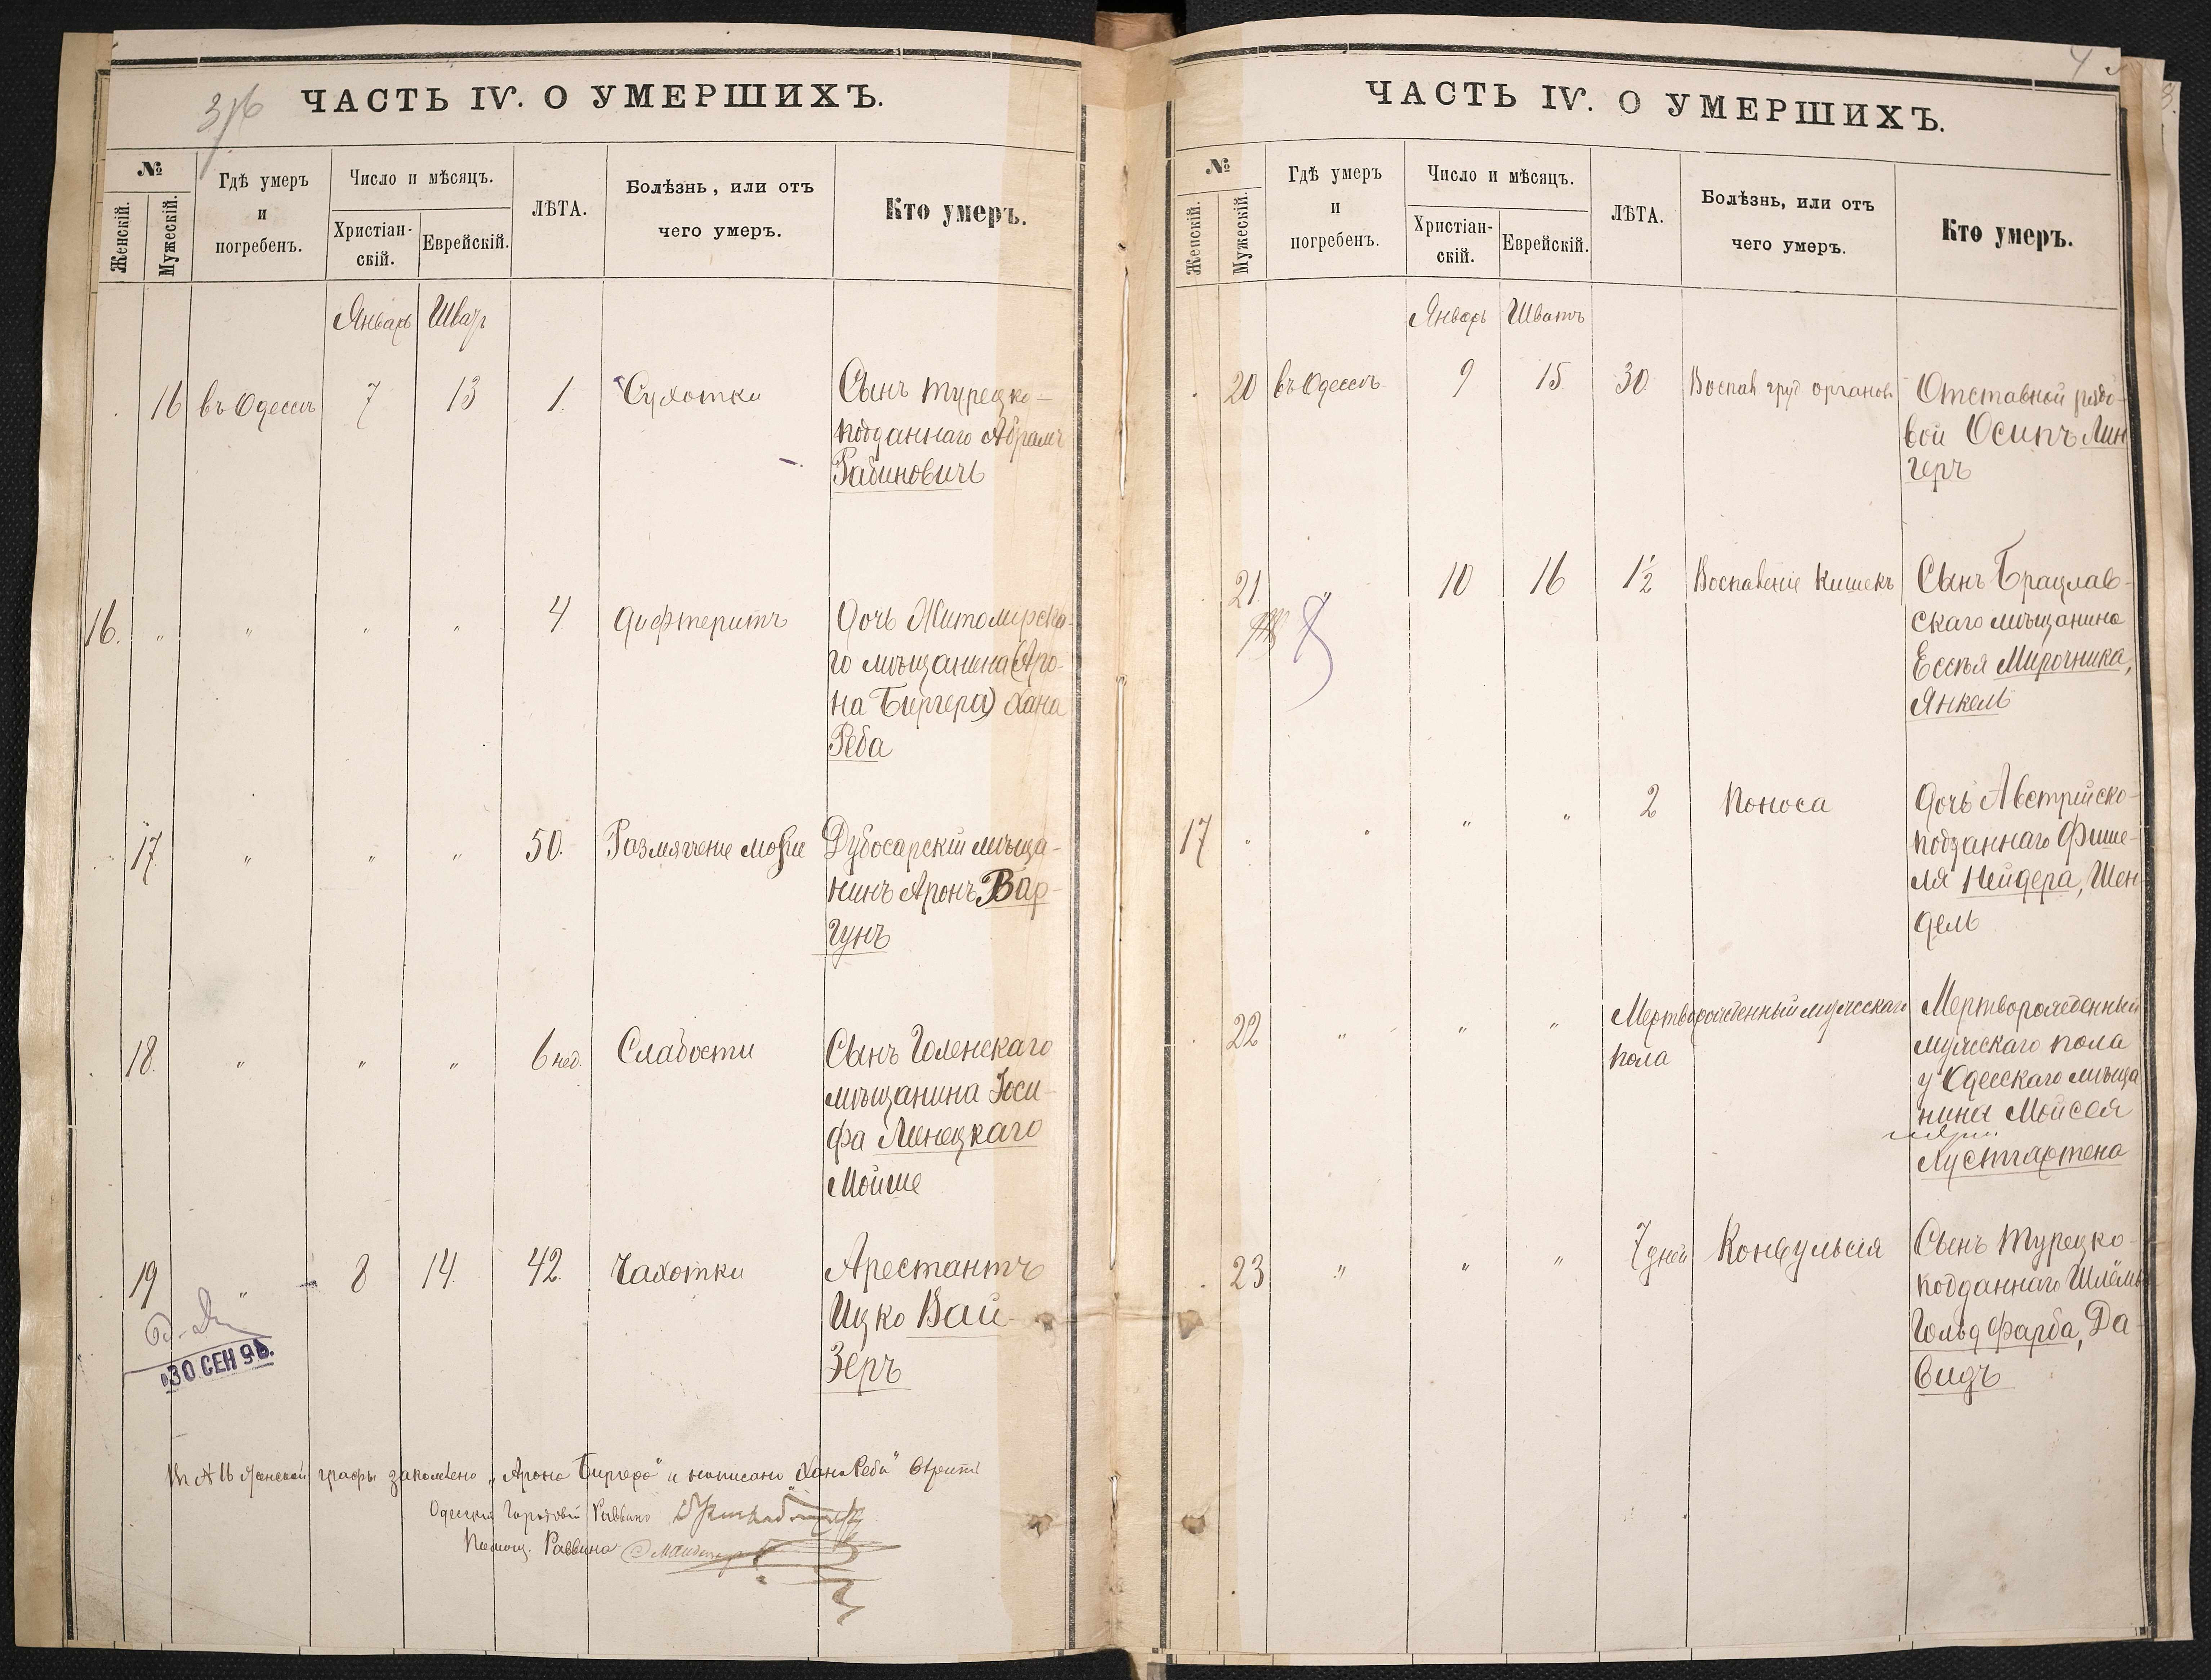 ЧАСТЬ IV. О УМЕРШИХЪ.
№
Женскій.
Мужескій.
Гдѣ умеръ
и
погребенъ.
Число и мѣсяцъ.
Христіан-
скій.
Еврейскій.
ЛѢТА.
Болѣзнь, или отъ
чего умеръ.
Кто умеръ.
Январь Шватъ
16 въ Одессѣ 7 13 1. Сухотки Сынъ турецко-
подданнаго Абрамъ
Рабиновичъ
16. " " " " 4 Дифтеритъ Дочь Житомирска-
го мѣщанина (Аро-
на Биргера) Хана
Реба
17. " " " 50. Размягченіе мозга Дубосарскій мѣща-
нинъ Аронъ Вар-
гунъ
18. " " " 6 нед. Слабости Сынъ Голенскаго
мѣщанина Іоси-
фа Линецкаго
Мойше
19 " 8 14. 42. Чахотки Арестантъ
Ицко Вай-
зеръ
30 СЕН 96.
Въ № 16 женской графы заклеймено „Арона Биргера" и написано „Хана Реба" вѣрить
Одесскій Городовой Раввинъ
Помощ. Раввина
ЧАСТЬ IV. О УМЕРШИХЪ.
№
Женскій.
Мужескій.
Гдѣ умеръ
и
погребенъ.
Число и мѣсяцъ.
Христіан-
скій.
Еврейскій.
ЛѢТА.
Болѣзнь, или отъ
чего умеръ.
Кто умеръ.
Январь Шватъ
20 въ Одессѣ 9 15 30 Воспал. груд. органовъ Отставной рядо-
вой Осипъ Лин
геръ
21. " 10 16 1½ Воспаленіе кишекъ Сынъ Брацлав-
скаго мѣщанина
Есселя Мирочника,
Янкель
17 " " " " 2 Поноса Дочь Австрійско-
подданнаго Фише-
ля Нейдера, Шен-
дель
22 " " " Мертворожденный мужескаго Мертворожденный
пола мужескаго пола
у Одесскаго мѣща
нина Мойсея
Лустгартена
23 " " " 7 дней Конвульсія Сынъ турецко-
подданнаго Шлёмы
Гольдфарба, Да-
видъ